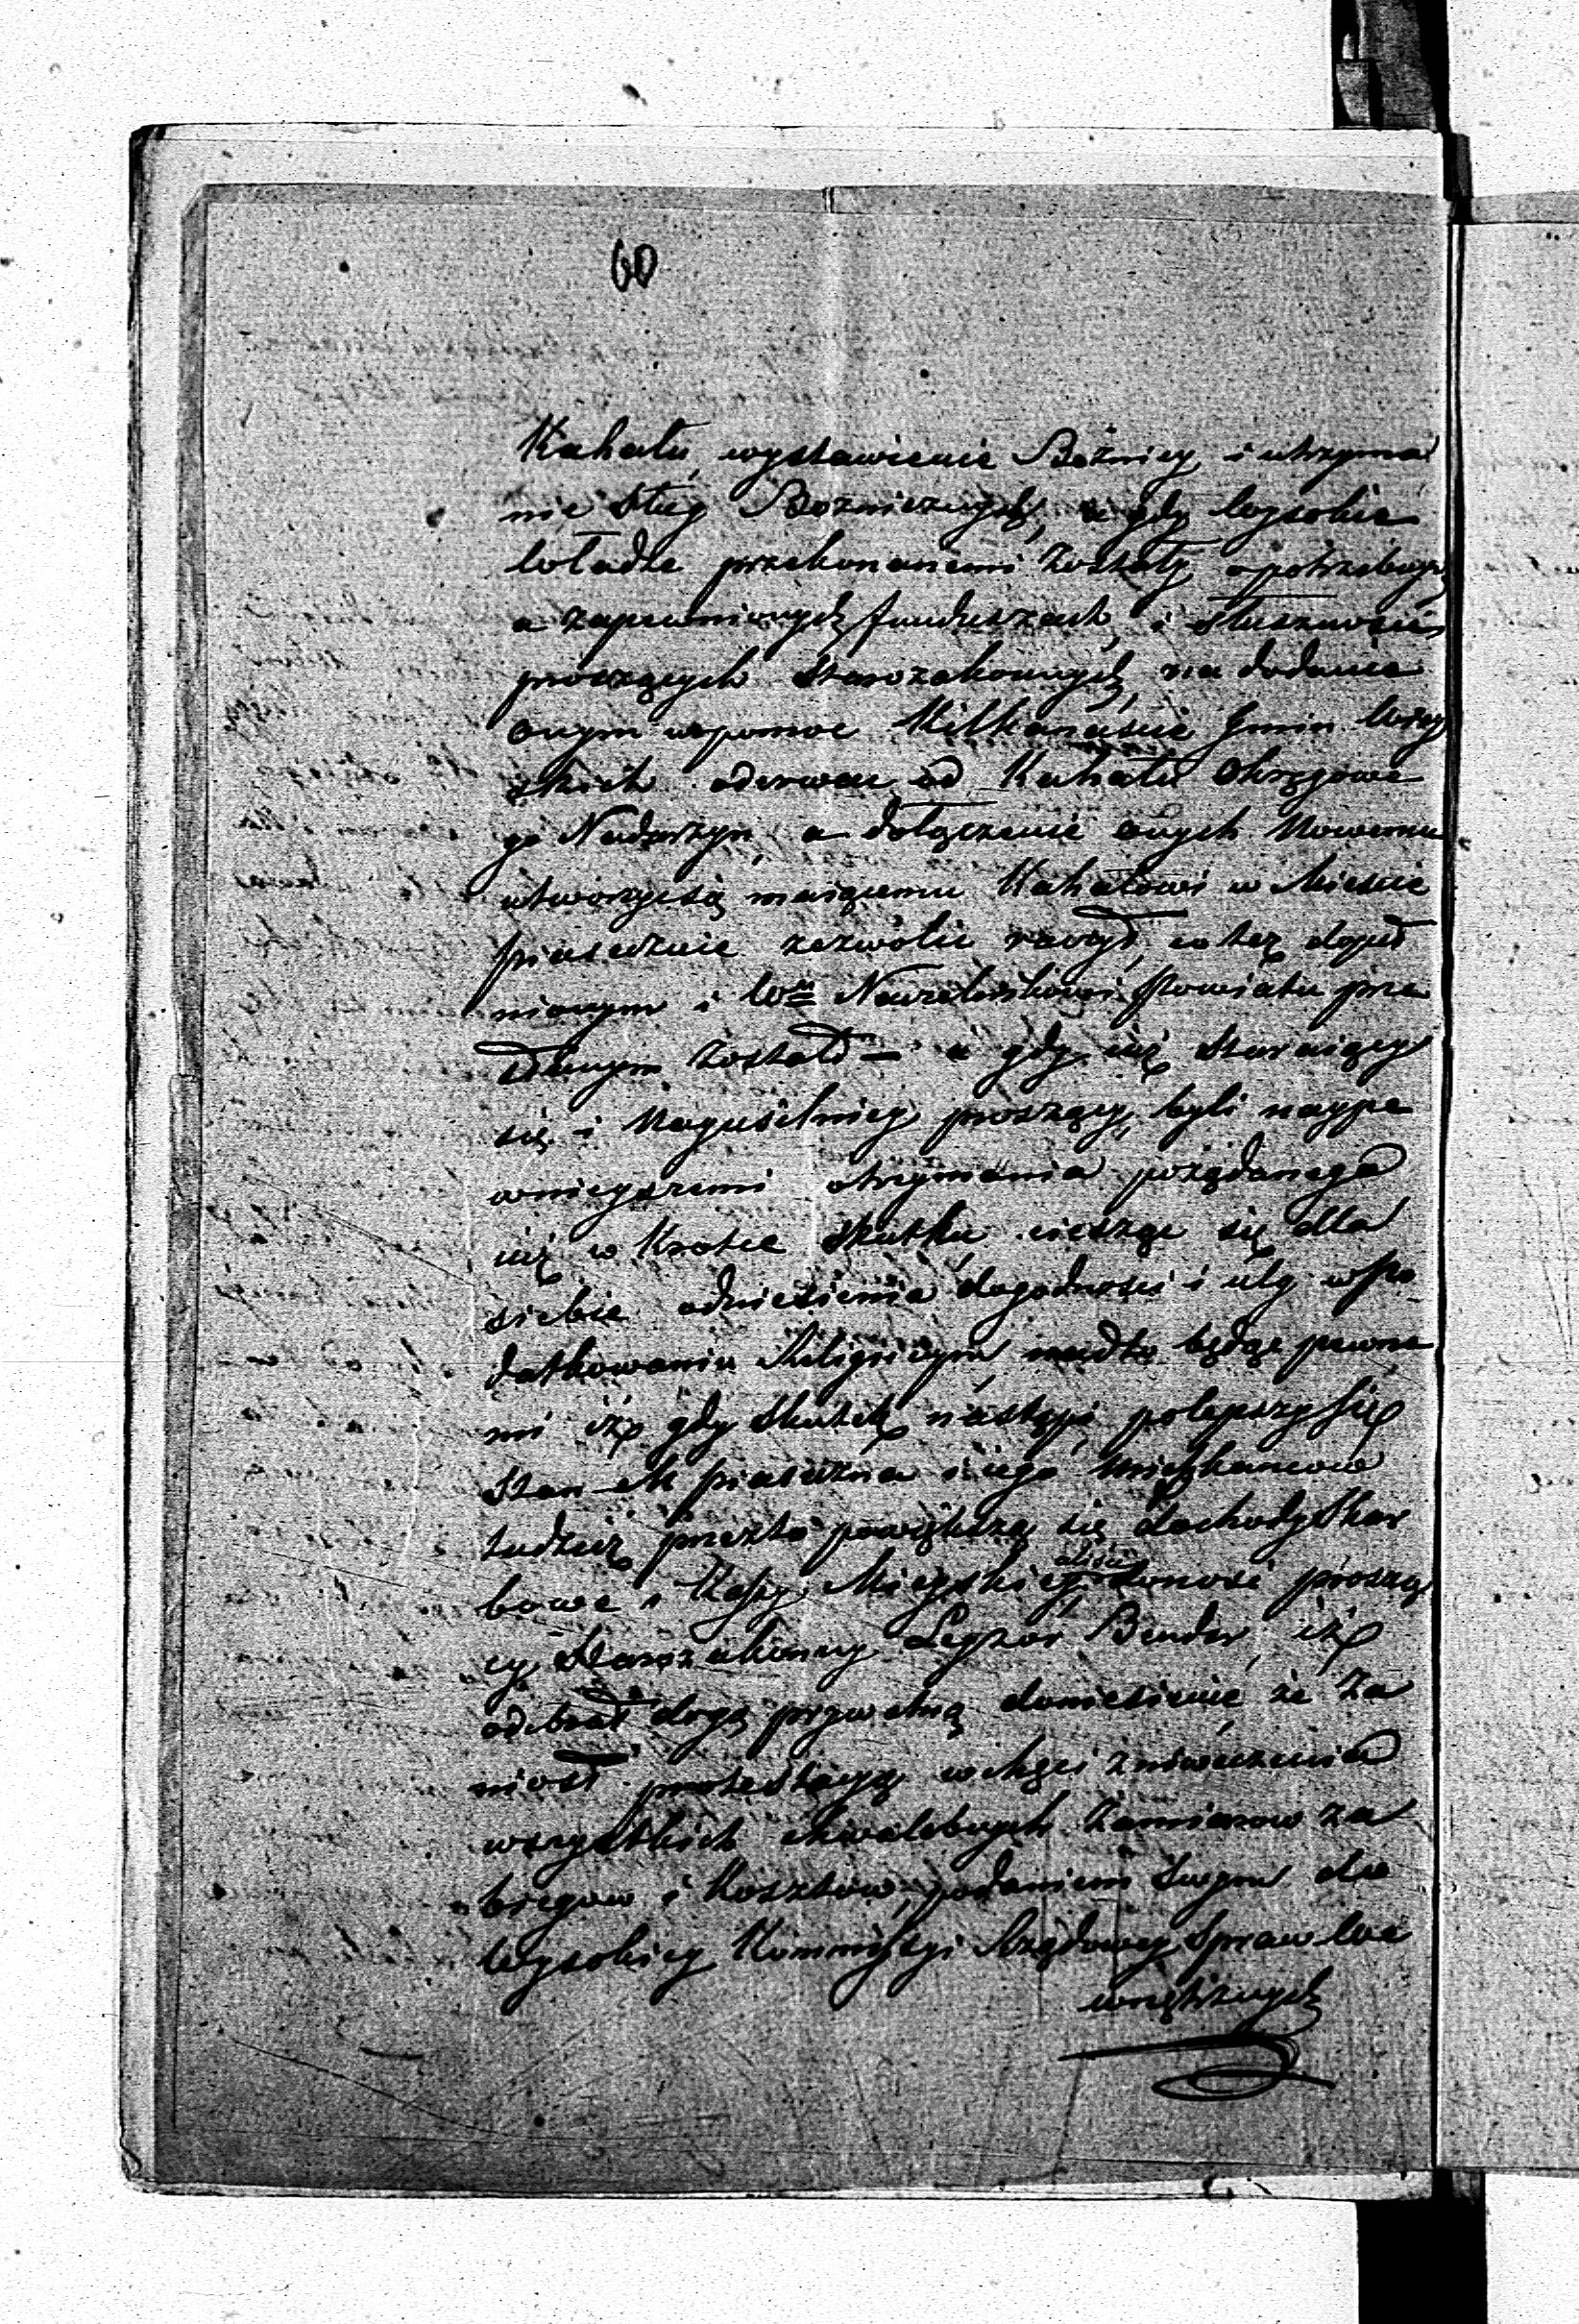 60
Kahału, wystawienie Bóżnicy i utrzyma
nie sług Bozniczych, a gdy Wysokie
Władze przekonanemi zostały o potrzebie,
a zapewnionych funduszach, i słuszności
proszących Starozakonnych, na dodanie
onym w pomoc Kilkanaście Gmin Wiey
skich oderwan od Kahału Okręgowe
go Nadarzyn, a dołączenie onych Nowemu
utworzyć się maiącemu Kahałowi w Mieście
Piasecznie zezwolić raczył, co też dopeł
nionym i Wu Naczelnikowi Powiatu prze
słanym został — a gdy iuż staraiący
się i Nayusilniey proszący, byli naype
wnieyszemi otrzymania pożądanego
iuż w krotce skutku ciesząc się dla
siebie odniesienia dogodności i ulg w Po
datkowaniu Religiinym, nadto będąc pewne
mi iż gdy skutek nastąpi, polepszy się
stan M Piaseczna i iego Mieszkancow
tudzież przezto powiększą się dochody Skar
bowe i Kassy Mieyskiey, aliści donosi proszą
cy Starozakonny Leyzor Bender, iż
odebrał drogą prywatną doniesienie że za
niosł protestacyą w chęci zniweczenia
wszystkich chwalebnych zamiarow za
biegow i Kosztow, podaniem swym do
Wysokiey Kommissyi Rządowey Spraw We
wnętrznych